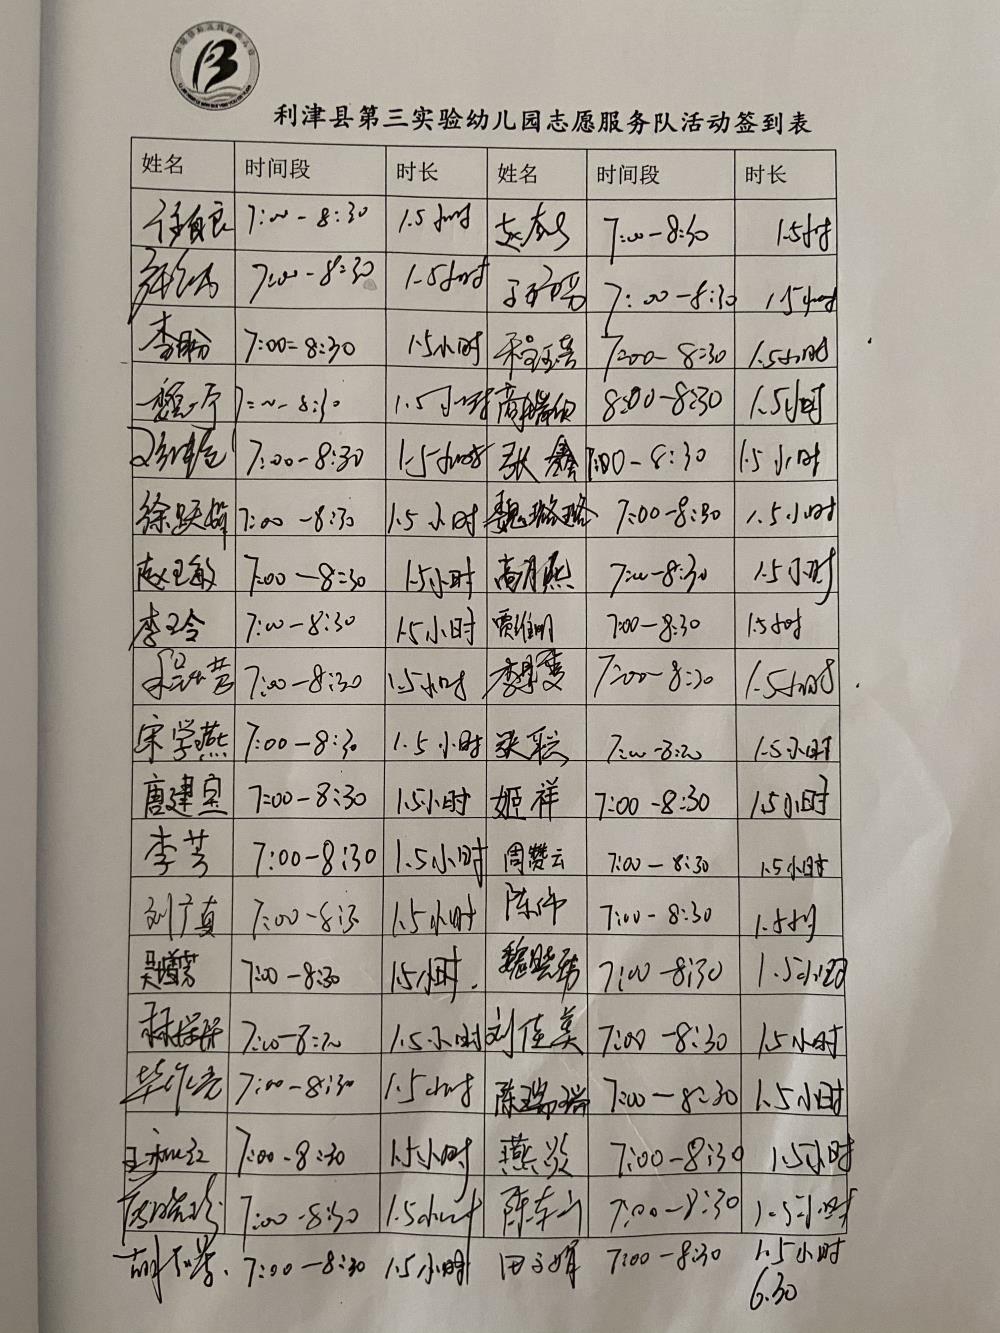 利津县第三实验幼儿园志愿服务队活动签到表
姓名 时间段 时长 姓名 时间段 时长
7:00-8:30 1.5小时 7:00-8:30 1.5小时
7:00-8:30 1.5小时 7:00-8:30 1.5小时
李盼 7:00-8:30 1.5小时 程钰莹 7:00-8:30 1.5小时
7:00-8:30 1.5小时 8:00-8:30 1.5小时
7:00-8:30 1.5小时 张鑫 7:00-8:30 1.5小时
徐跃娟 7:00-8:30 1.5小时 魏璐璐 7:00-8:30 1.5小时
赵玉敏 7:00-8:30 1.5小时 高月熙 7:00-8:30 1.5小时
李玉令 7:00-8:30 1.5小时 贾维明 7:00-8:30 1.5小时
7:00-8:30 1.5小时 7:00-8:30 1.5小时
宋学燕 7:00-8:30 1.5小时 7:00-8:30 1.5小时
唐建宝 7:00-8:30 1.5小时 姬祥 7:00-8:30 1.5小时
李芳 7:00-8:30 1.5小时 周赞云 7:00-8:30 1.5小时
刘广真 7:00-8:30 1.5小时 陈伟 7:00-8:30 1.5小时
7:00-8:30 1.5小时. 魏晓娟 7:00-8:30 1.5小时
7:00-8:30 1.5小时 刘佳美 7:00-8:30 1.5小时
7:00-8:30 1.5小时 陈瑞瑞 7:00-8:30 1.5小时
7:00-8:30 1.5小时 7:00-8:30 1.5小时
7:00-8:30 1.5小时 7:00-8:30 1.5小时
7:00-8:30 1.5小时 田子娟 7:00-8:30 1.5小时
6.30